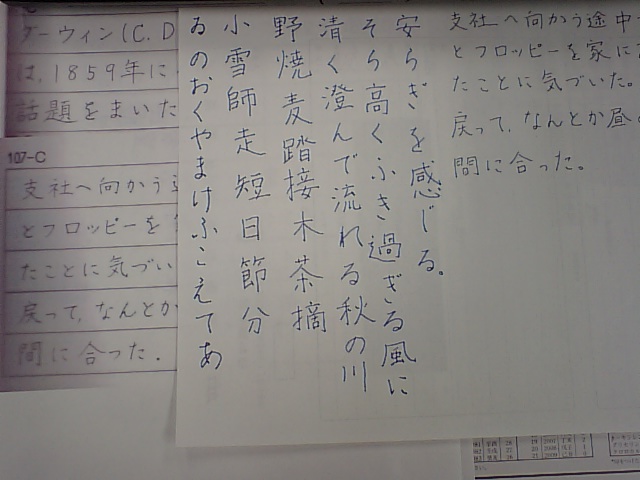 ダーウィン(C.D
は、1859年に
話題をまいた
107-C
支社へ向かう途
とフロッピーを
たことに気づい
戻って、なんとか
間に合った.
支社へ向かう途中
とフロッピーを家に
たことに気づいた。
戻って、なんとか昼
間に合った。
安らぎを感じる。
そら高くふき過ぎる風に
清く澄んで流れる秋の川
野焼麦踏接木茶摘
小雪師走短日節分
ゐのおくやまけふこえてあ